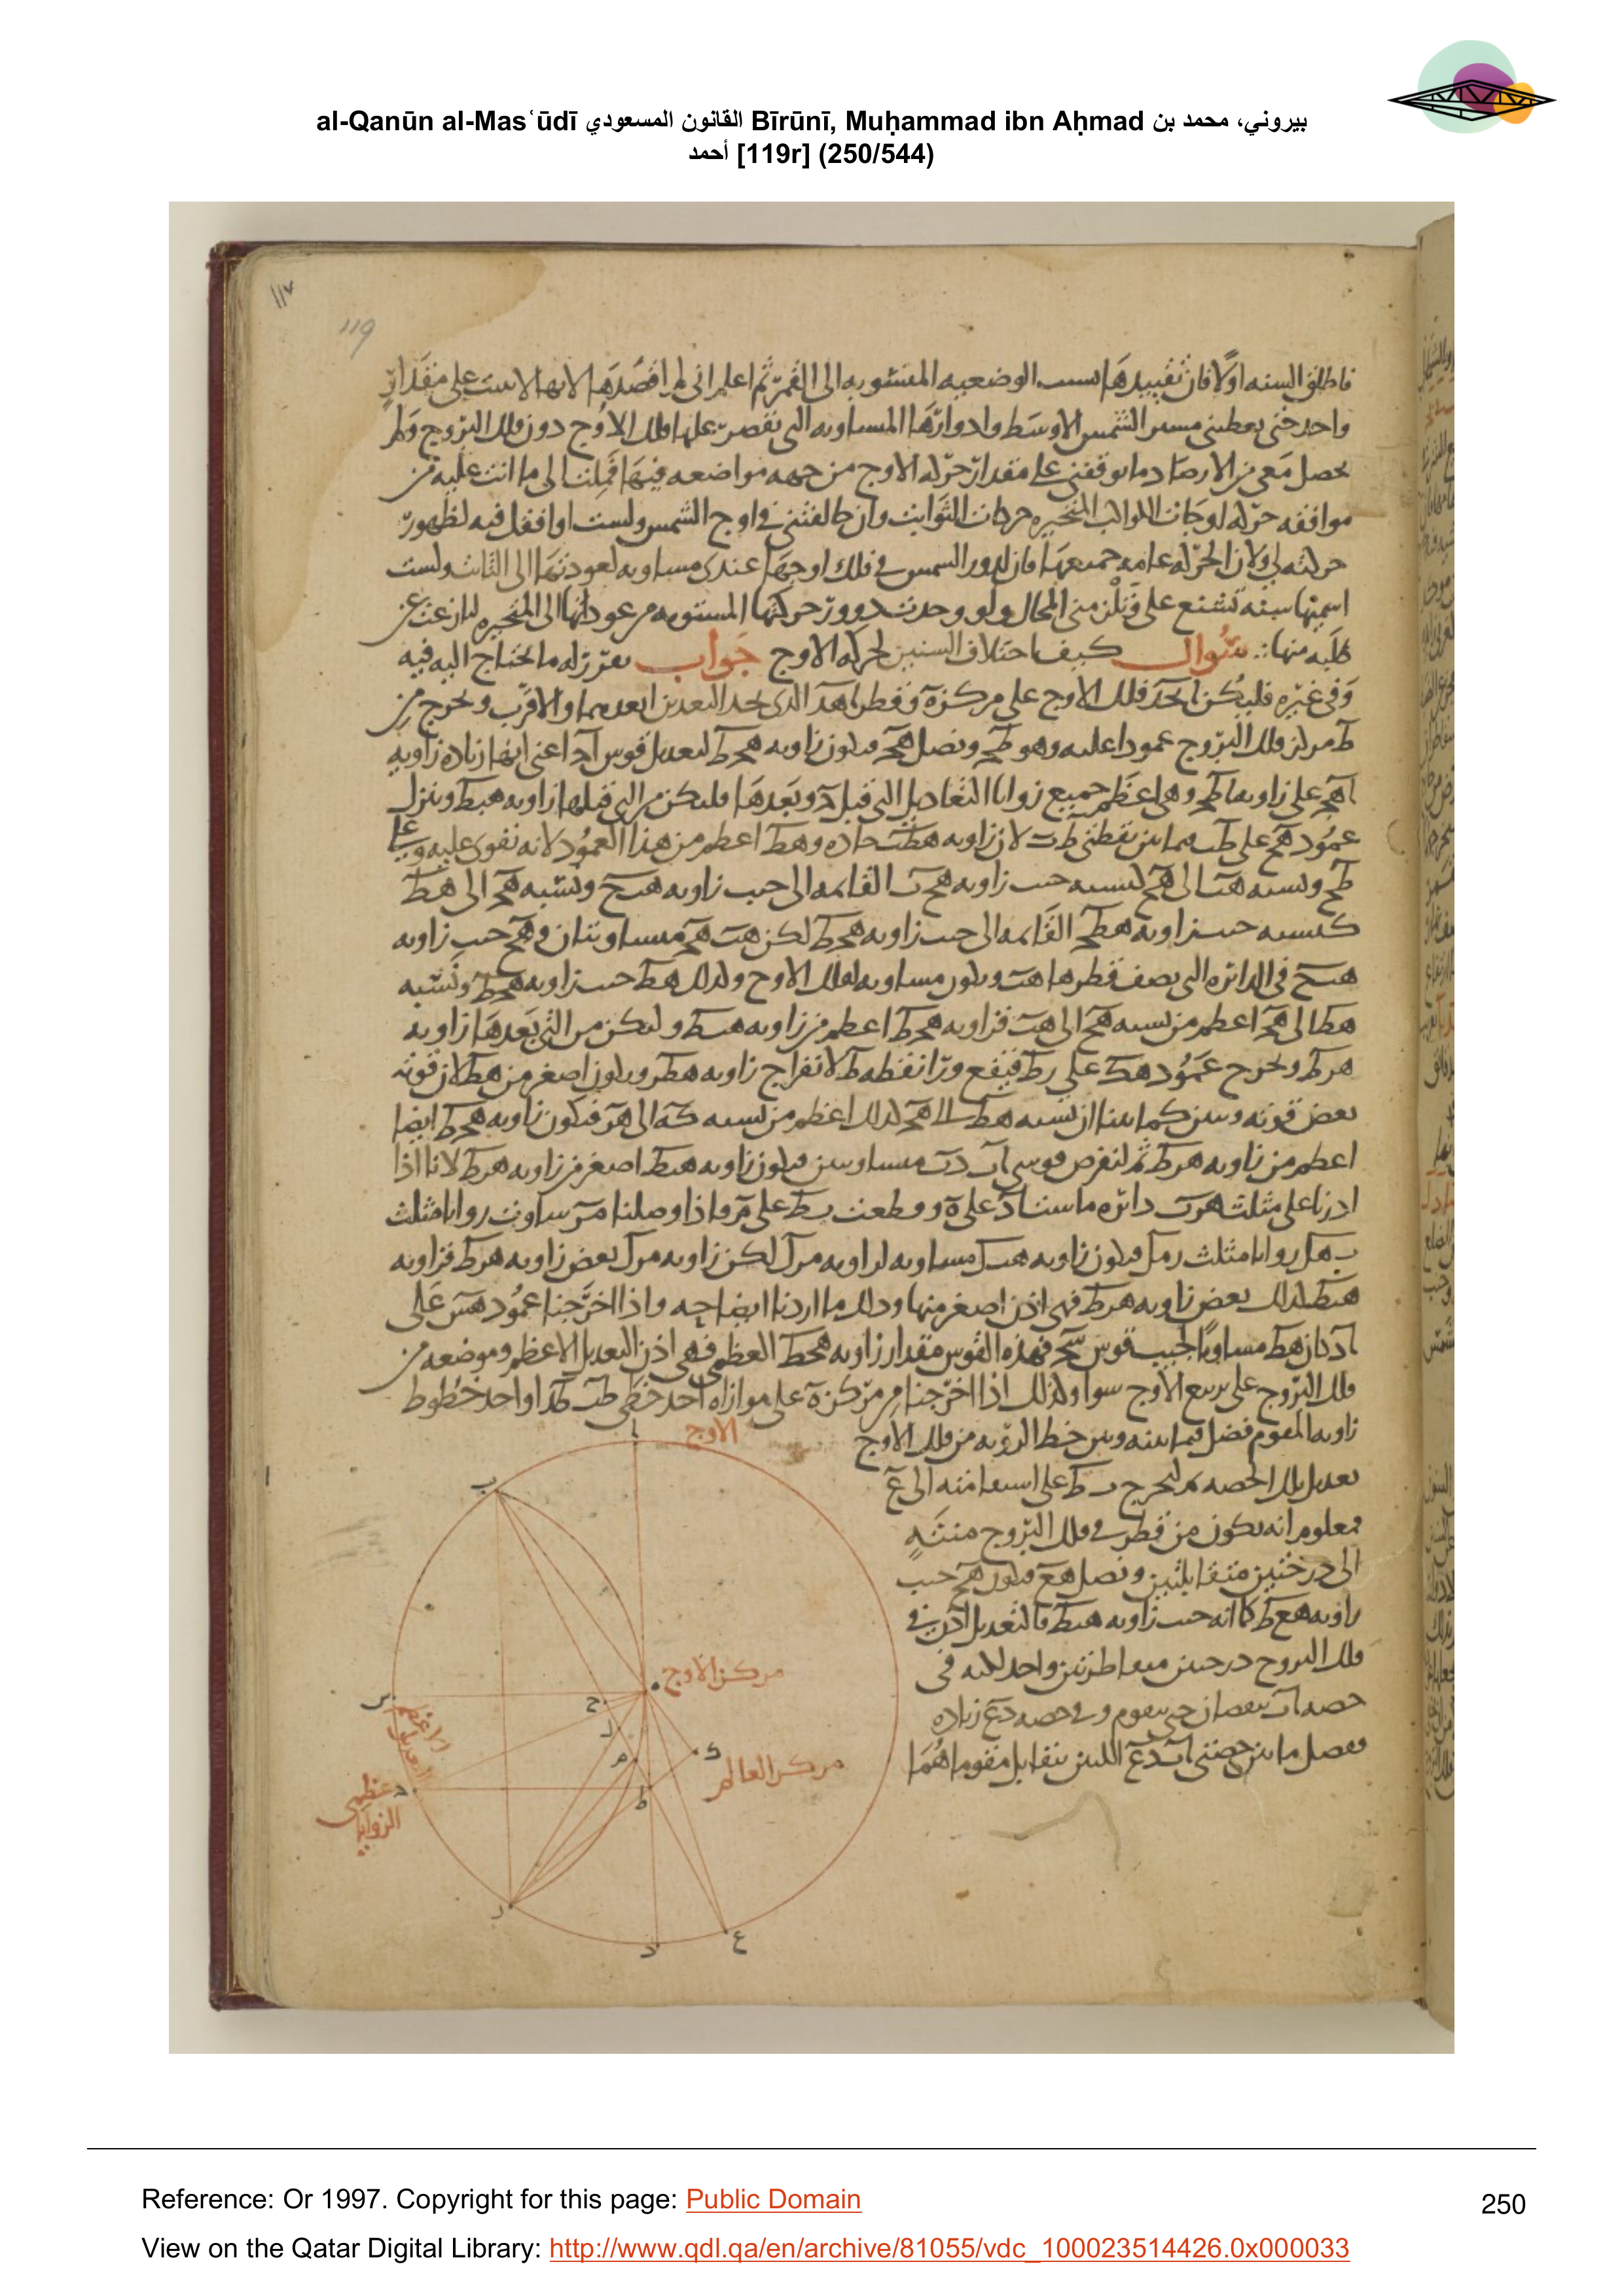 al-Qanūn al-Masʿūdī القانون المسعودي Bīrūnī, Muḥammad ibn Aḥmad بيروني، محمد بن
أحمد [119r] (250/544)
١١٧
119
فاطلق السنه اولا فان تقييدها بسبب الوضعيه المنسوبه الى القمر ثم اعلم انى لم اقصدها لانها لاست على مقدار
واحد حتى يعطينى مسير الشمس الاوسط وادوارها المساويه التى تقصر عليها فلك الاوج دون فلك البروج ولم
يحصل معى من الارصاد ما يوقفنى على مقدار حركه الاوج من جهه مواضعه فيها فملت الى ما انت عليه من
موافقه حركه اوجات الكواكب المتحيره حركات الثوابت وان خالفتنى فى اوج الشمس ولست اوافقك فيه لظهور
حركته لى ولان الحركه عامه جميعها فان ادوار الشمس فى فلك اوجها عندى مساويه لعودتها الى الثابت ولست
اسميها سنه تشنع على وتلزمنى المحال ولو وجدت دور حركتها المستويه من عوداتها الى المتحيره لما رغبت عن
طلبه منها سؤال كيف اختلاف السنين لحركه الاوج جواب نقرر له ما يحتاج اليه فيه
وفى غيره فليكن ابجد فلك الاوج على مركزه ه وقطر اهد الذى يحد البعدين ابعدهما والاقرب ونخرج من
ط مركز فلك البروج عمودا عليه وهو طج ونصل هج فيكون زاويه هجط لتعديل قوس اج اعنى انها زياده زاويه
اهج على زاويه اطج وهى اعظم جميع زوايا التعاديل التى قبل ج وبعدها فليكن من التى قبلها زاويه هبط وينزل
عمود هح على طب فيما بين نقطتى ط ب لان زاويه هطب حاده وهط اعظم من هذا العمود لانه يقوى عليه وعلى
طح ونسبه هب الى هح كنسبه جيب زاويه هحب القائمه الى جيب زاويه هبح ونسبه هج الى هط
كنسبه جيب زاويه هطج القائمه الى جيب زاويه هجط لكن هب هج متساويتان وهح جيب زاويه
هبح فى الدائره التى نصف قطرها هب ويكون مساويه لفلك الاوج وكذلك هط جيب زاويه هجط ونسبه
هط الى هج اعظم من نسبه هح الى هب فزاويه هجط اعظم من زاويه هبط وليكن من التى بعدها زاويه
هرط ونخرج عمود هك على رط فيقع ورا نقطه ط لانفراج زاويه هطر ويكون اصغر من هط لان قوته
بعض قوته وبين كما بينا ان نسبه هط الى هج كذلك اعظم من نسبه كه الى هر فيكون زاويه هجط ايضا
اعظم من زاويه هرط ثم لنفرض قوسى اب در متساويتين فيكون زاويه هبط اصغر من زاويه هرط لانا اذا
ادرنا على مثلث هرب دائره ماست اد على ه وقطعت بط على م فاذا وصلنا مر ساوت زوايا مثلث
بهل زوايا مثلث رمل فيكون زاويه هبل مساويه لزاويه مرل لكن زاويه مرل بعض زاويه هرط فزاويه
هبط كذلك بعض زاويه هرط فهى اذن اصغر منها وذلك ما اردنا ايضاحه واذا اخرجنا عمود هس على
اد كان هط مساويا لجيب قوس سج فهذه القوس مقدار زاويه هجط العظمى فهى اذن التعديل الاعظم وموضعه من
فلك البروج على تربيع الاوج سوا وكذلك اذا اخرجنا من مركز ه على موازاه احد خطى طب طر او احد خطوط
زاويه المقوم فضل فيما بينه وبين خط الرؤيه من فلك الاوج
تعديل تلك الحصه ثم لنخرج بط على استقامته الى ع
فمعلوم انه يكون من قطر فى فلك البروج منته
الى درجتين متقابلتين ونصل هع فيكون هح جيب
زاويه هعط كما انه جيب زاويه هبط فالتعديل اذن فى
فلك البروج درجتين متناظرتين واحد لكنه فى
حصه اب نقصان حتى يتقوم وفى حصه دع زياده
وفصل ما بين حصتى اب دع اللتين يتقابل مقوماهما
الاوج
ا
ب
مركز الاوج
ح
س
الاعظم
التعديل
ل
م
ك
مركز العالم
ط
ج
عظمى
الزوايا
ر
د
ع
Reference: Or 1997. Copyright for this page: Public Domain
250
View on the Qatar Digital Library: http://www.qdl.qa/en/archive/81055/vdc_100023514426.0x000033